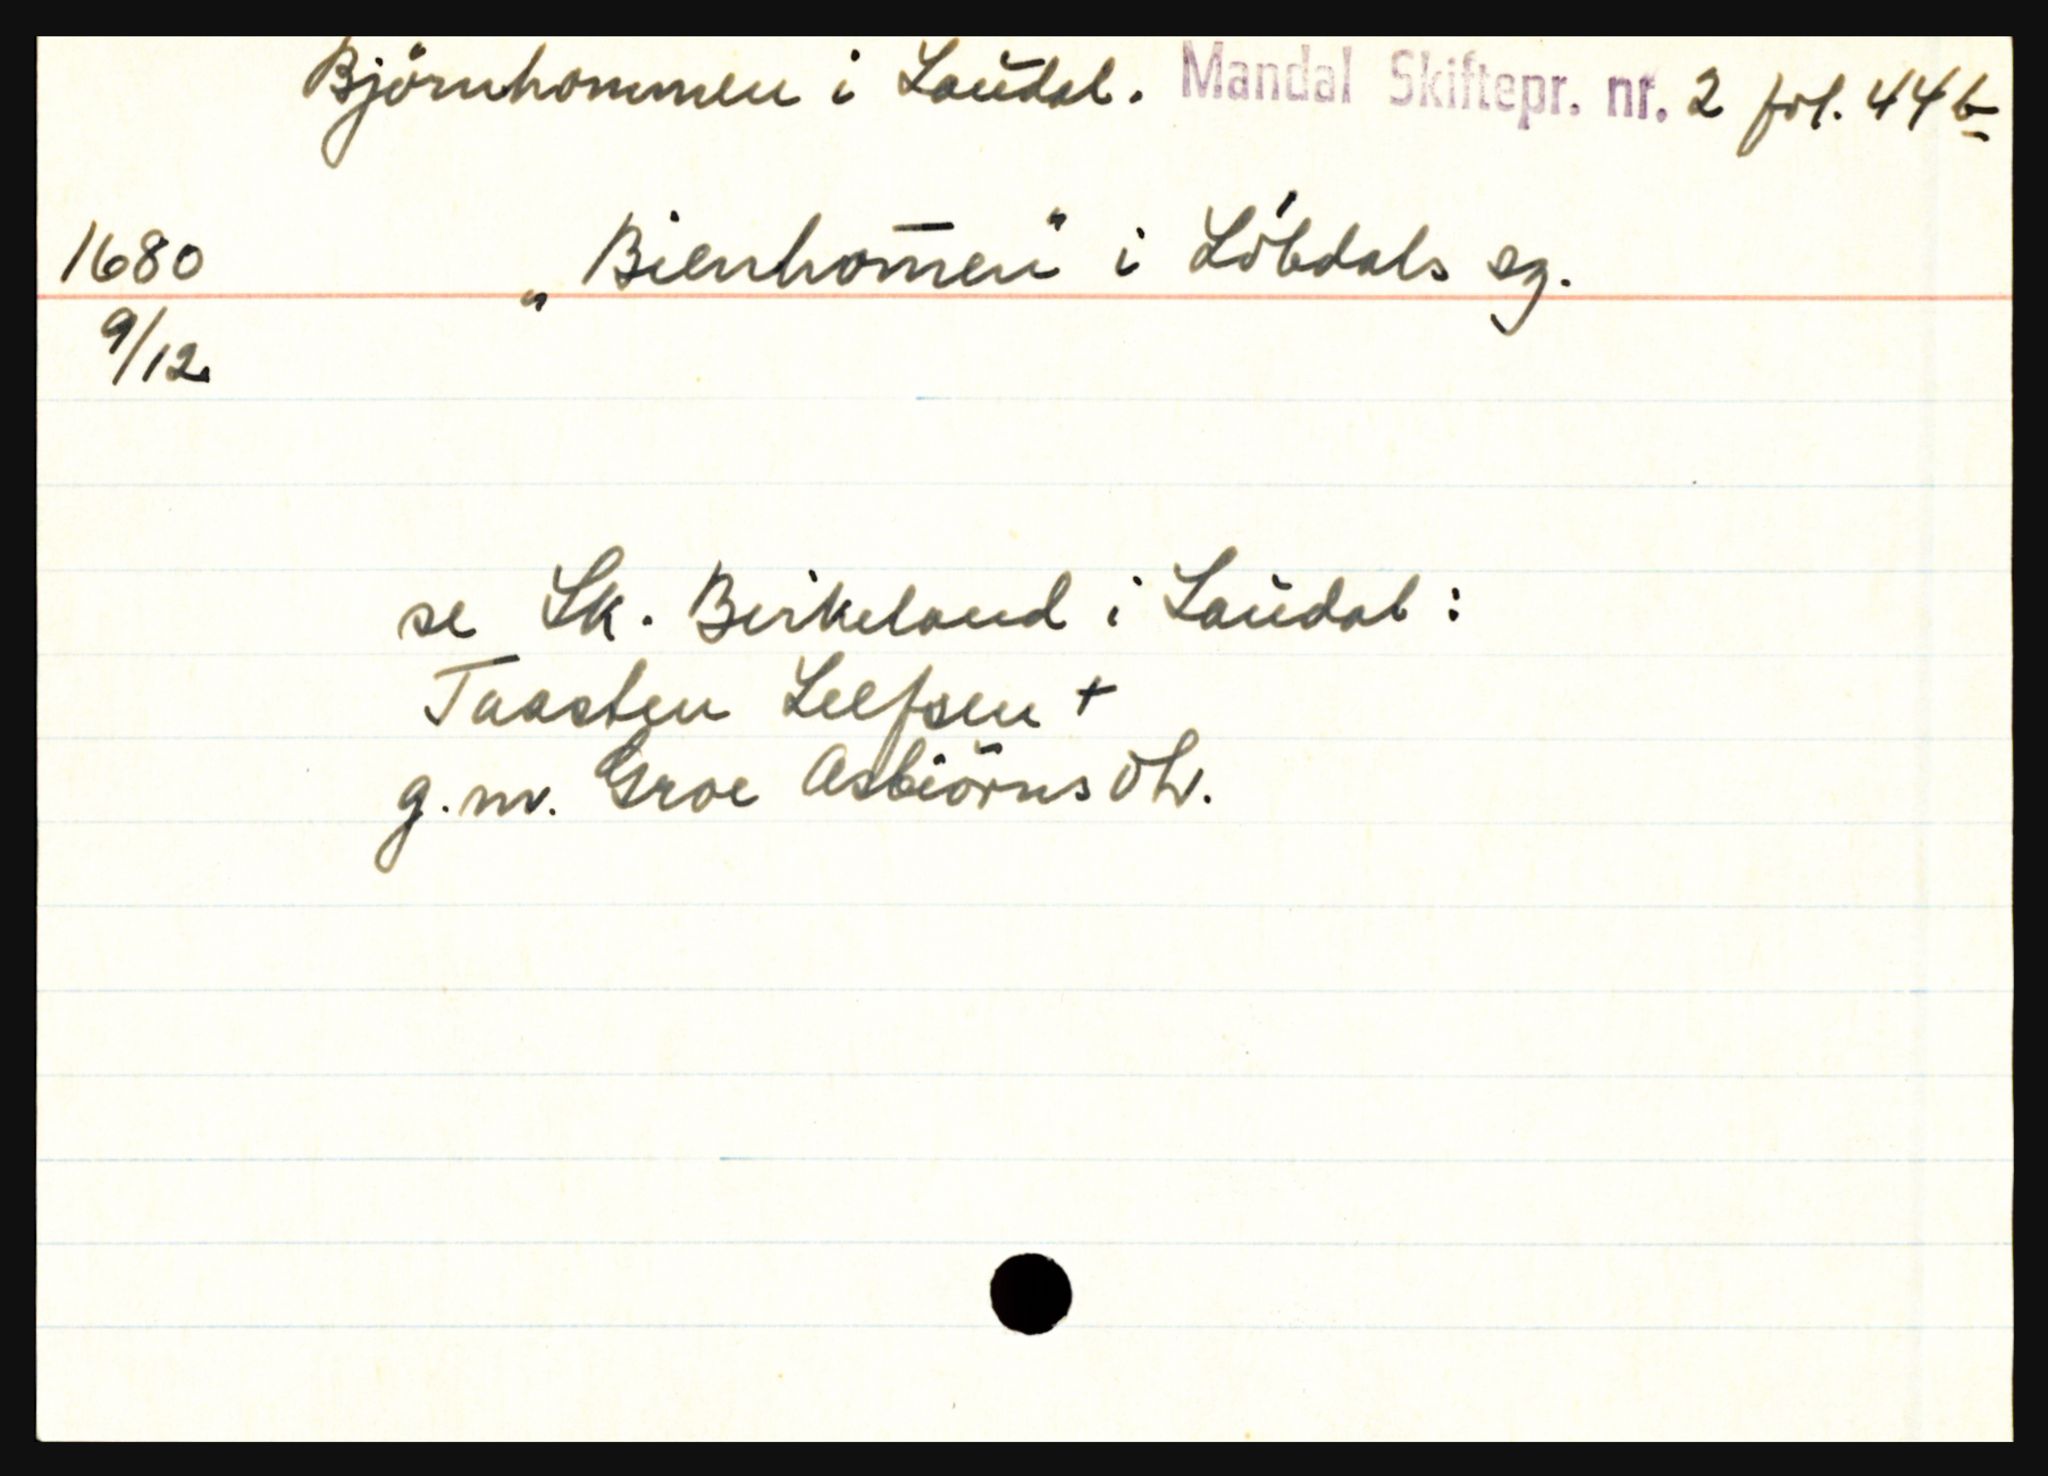 Björnhommen i Laudal. Mandal Skiftepr. nr. 2 fol. 44b
1680 „Bienhom̄en" i Löbdals sg.
9/12
se Sk. Birkeland i Laudal:
Taasten Leefsen +
g.m. Groe Asbiörns dtr.